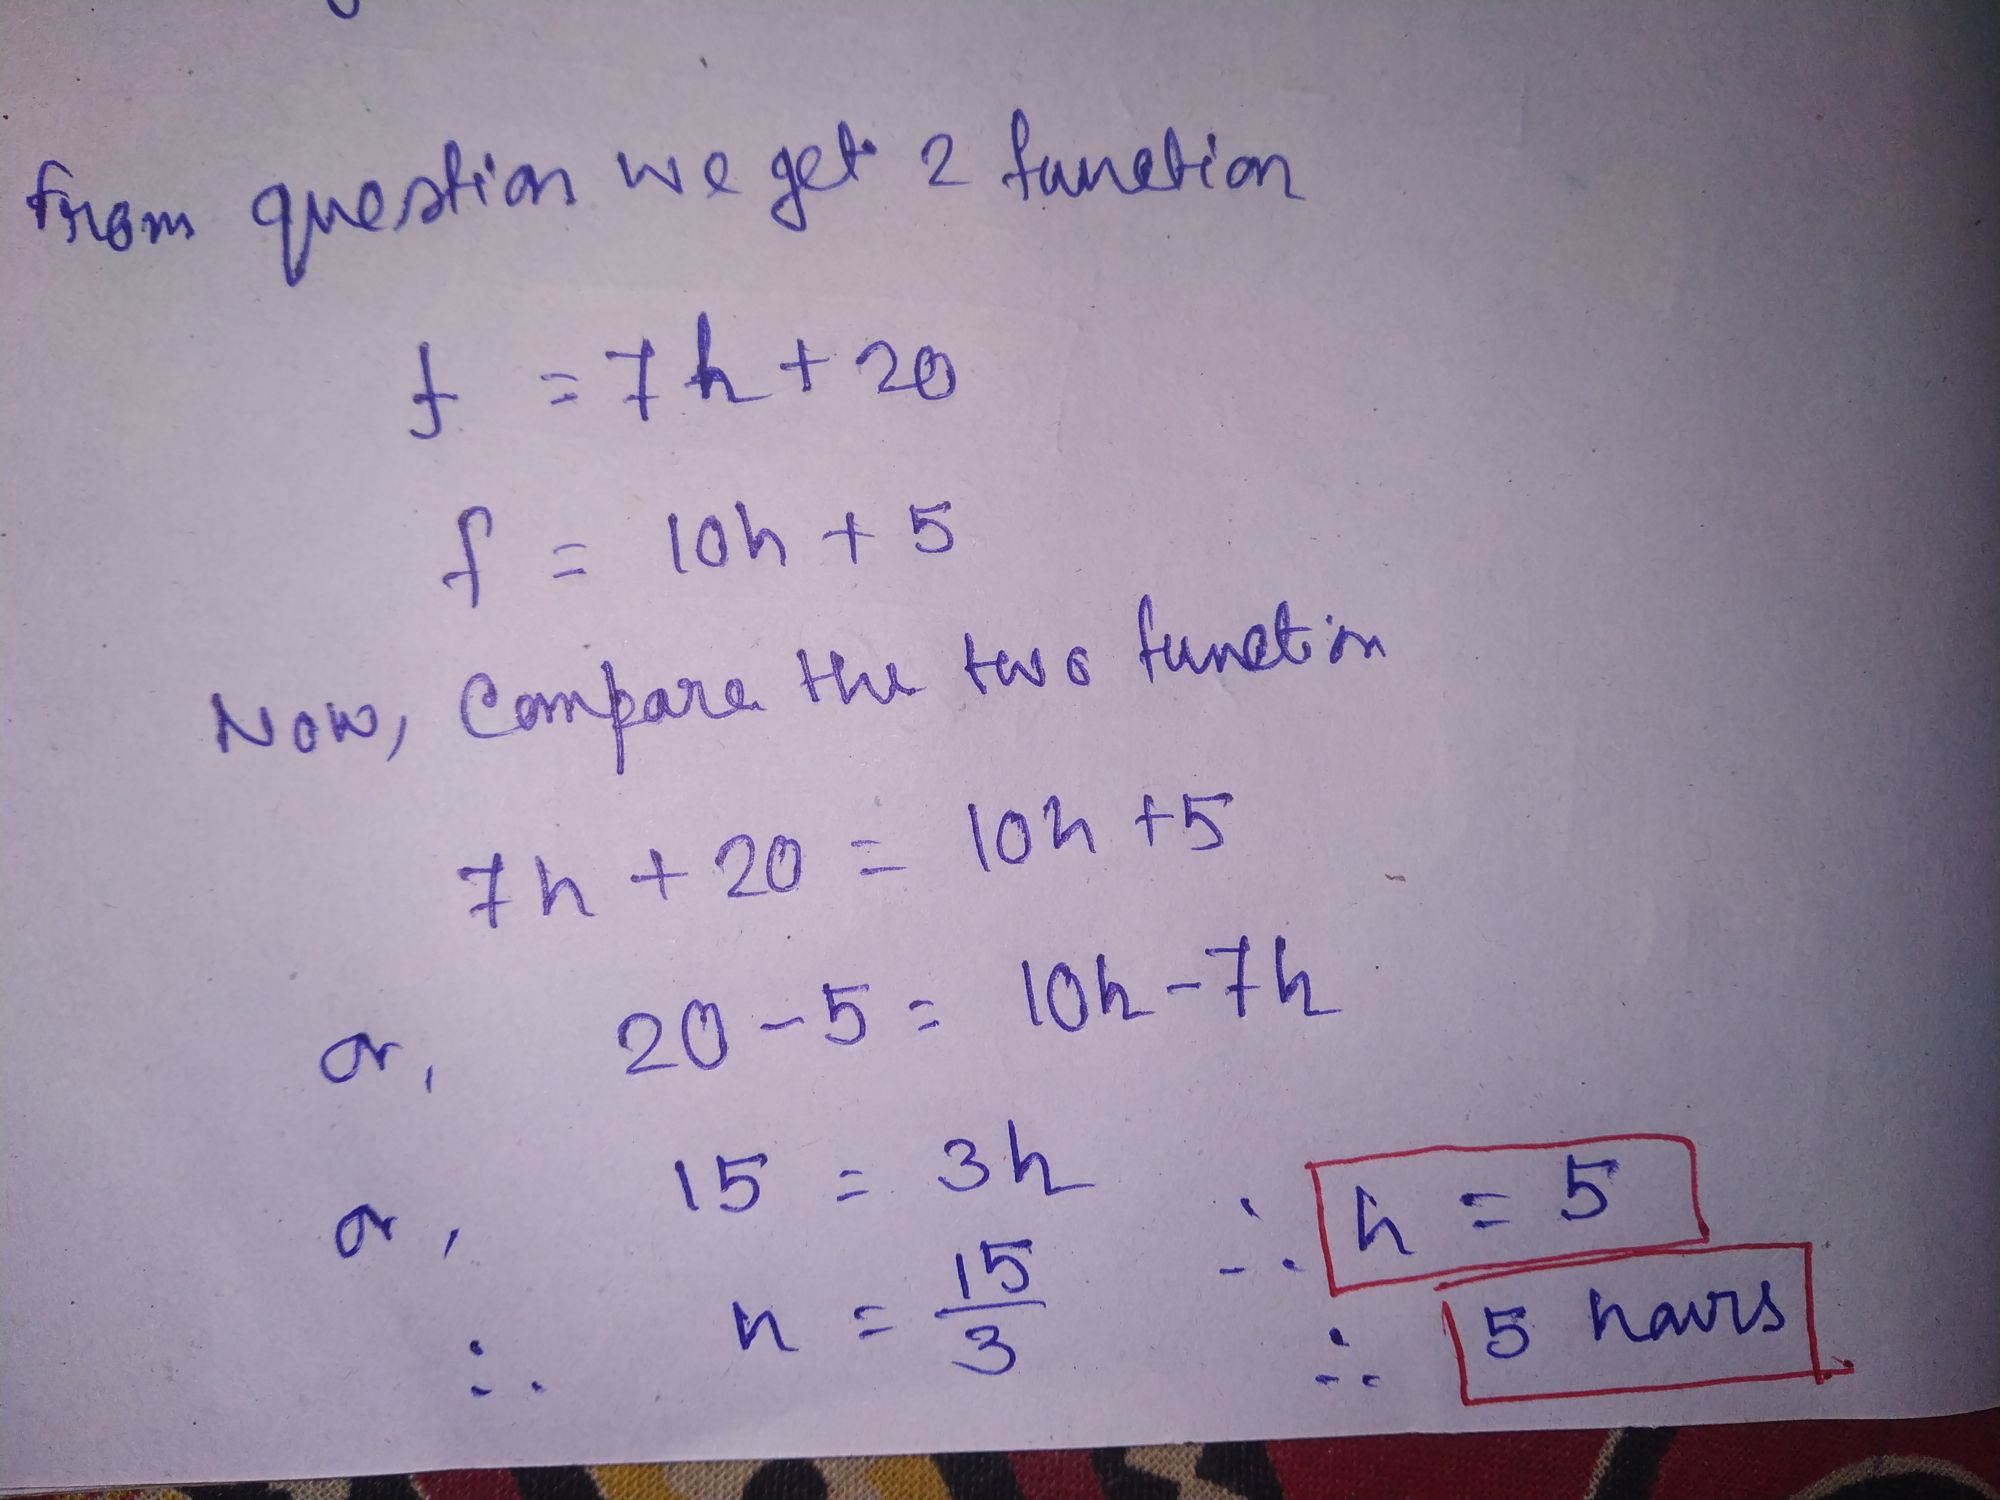 From question we get 2 function
f = 7h + 20
f = 10h + 5
Now, Compare the two function
7h + 20 = 10h + 5
or, 20 - 5 = 10h - 7h
or, 15 = 3h
∴ h = 15/3 ∴ h = 5
∴ 5 hours